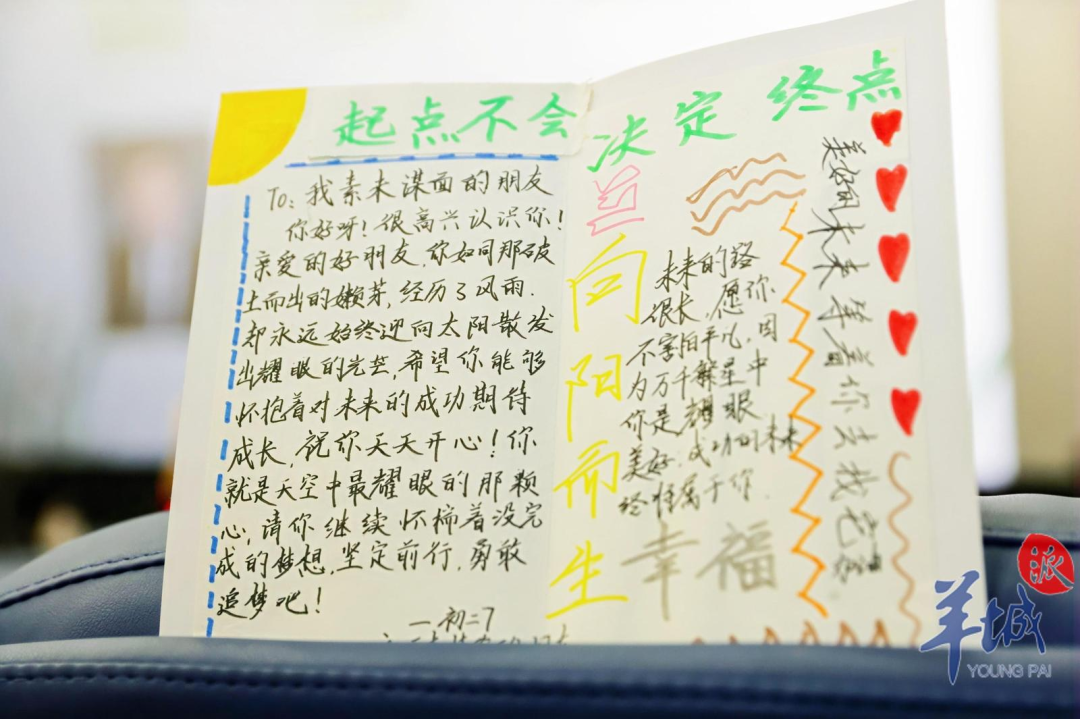 起点不会决定终点
To：我素未谋面的朋友
你好呀！很高兴认识你！
亲爱的好朋友，你如同那破
土而出的嫩芽，经历了风雨.
却永远始终迎向太阳散发
出耀眼的光芒，希望你能够
怀抱着对未来的成功期待
成长，祝你天天开心！你
就是天空中最耀眼的那颗
心，请你继续怀揣着没完
成的梦想，坚定前行，勇敢
追梦吧！
—初二7
向阳而生
未来的路
很长，愿你
不害怕平凡，因
为万千繁星中
你是耀眼
美好.成功的未来
终将属于你.
幸福
美好的未来等着你去找它
羊城派
YOUNG PAI